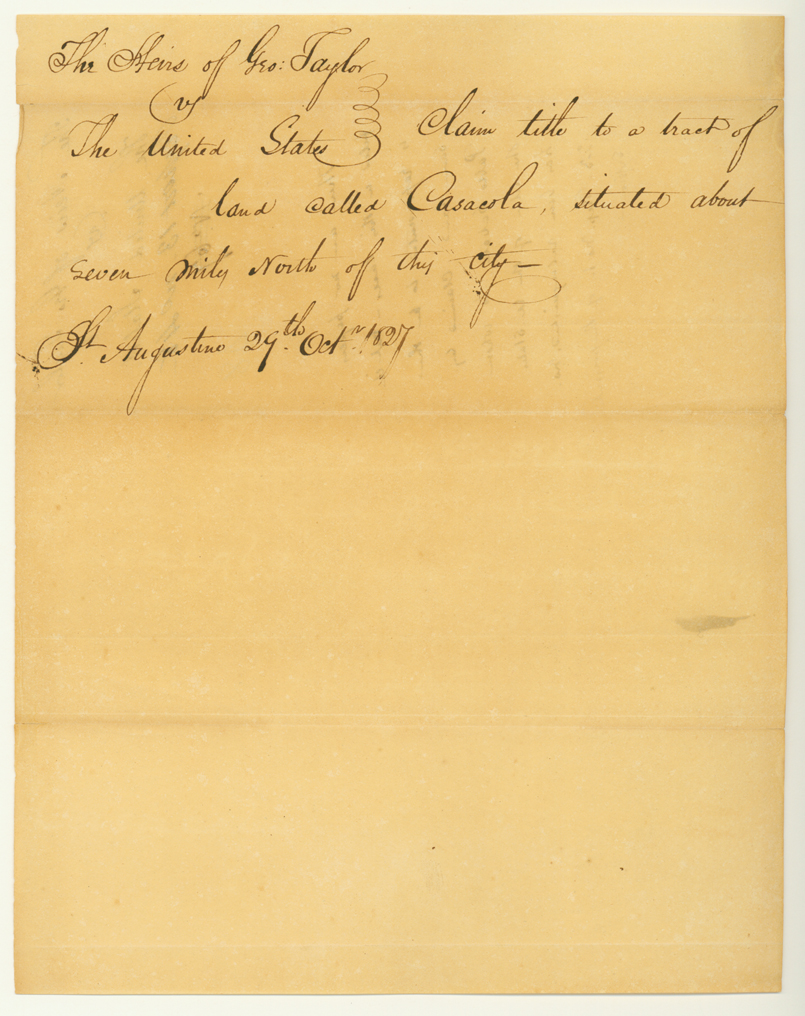 The Heirs of Geo: Taylor
vs
The United States Claim title to a tract of
land called Casacola, situated about
seven miles North of this city—
St. Augustine 29th. Octr. 1827